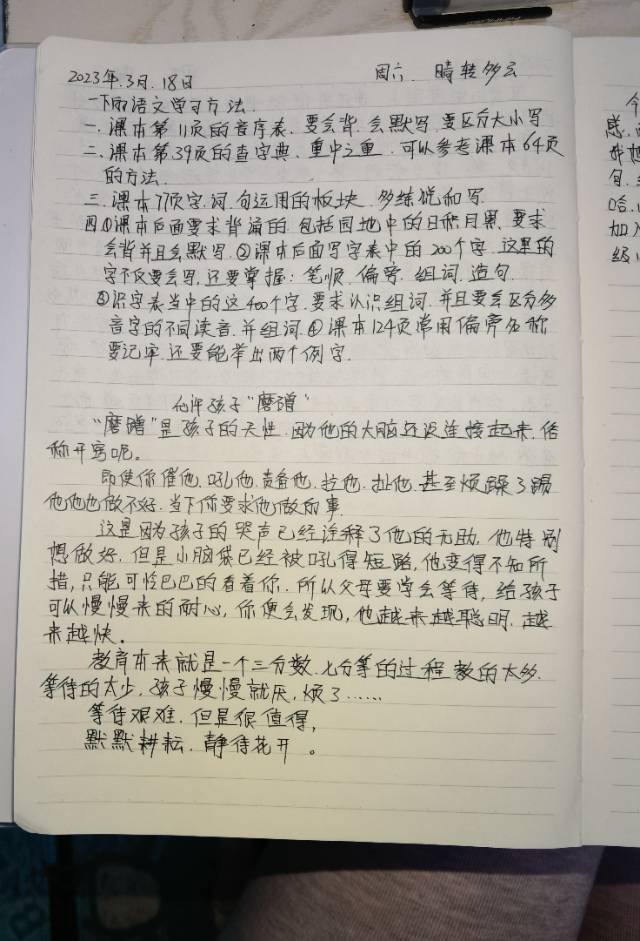 2023年.3月.18日 周六. 晴转多云
一下册语文学习方法.
一.课本第11页的音序表.要会背.会默写.要区分大小写
二.课本第39页的查字典.重中之重.可以参考课本64页
的方法.
三.课本77页字.词.句运用的板块.多练说和写.
四①课本后面要求背诵的.包括园地中的日积月累.要求
会背并且会默写.②课本后面写字表中的200个字.这里的
字不仅要会写,还要掌握:笔顺.偏旁.组词.造句.
③识字表当中的这400个字.要求认识组词.并且要会区分多
音字的不同读音.并组词.④课本124页常用偏旁名称
要记牢.还要能举出两个例字.
允许孩子“磨蹭”
“磨蹭”是孩子的天性.因为他的大脑还没连接起来,俗
称开窍呢。
即使你催他.吼他.责备他.拉他.扯他.甚至烦躁了踢
他他也做不好.当下你要求他做的事.
这是因为孩子的哭声已经诠释了他的无助.他特别
想做好.但是小脑袋已经被吼得短路,他变得不知所
措,只能可怜巴巴的看着你.所以父母要学会等待,给孩子
可以慢慢来的耐心,你便会发现,他越来越聪明.越
来越快。
教育本来就是一个三分教.七分等的过程.教的太多.
等待的太少.孩子慢慢就厌,烦了……
等待艰难.但是很值得,
默默耕耘.静待花开。
个
感,
我想
的.
哈.
加
级